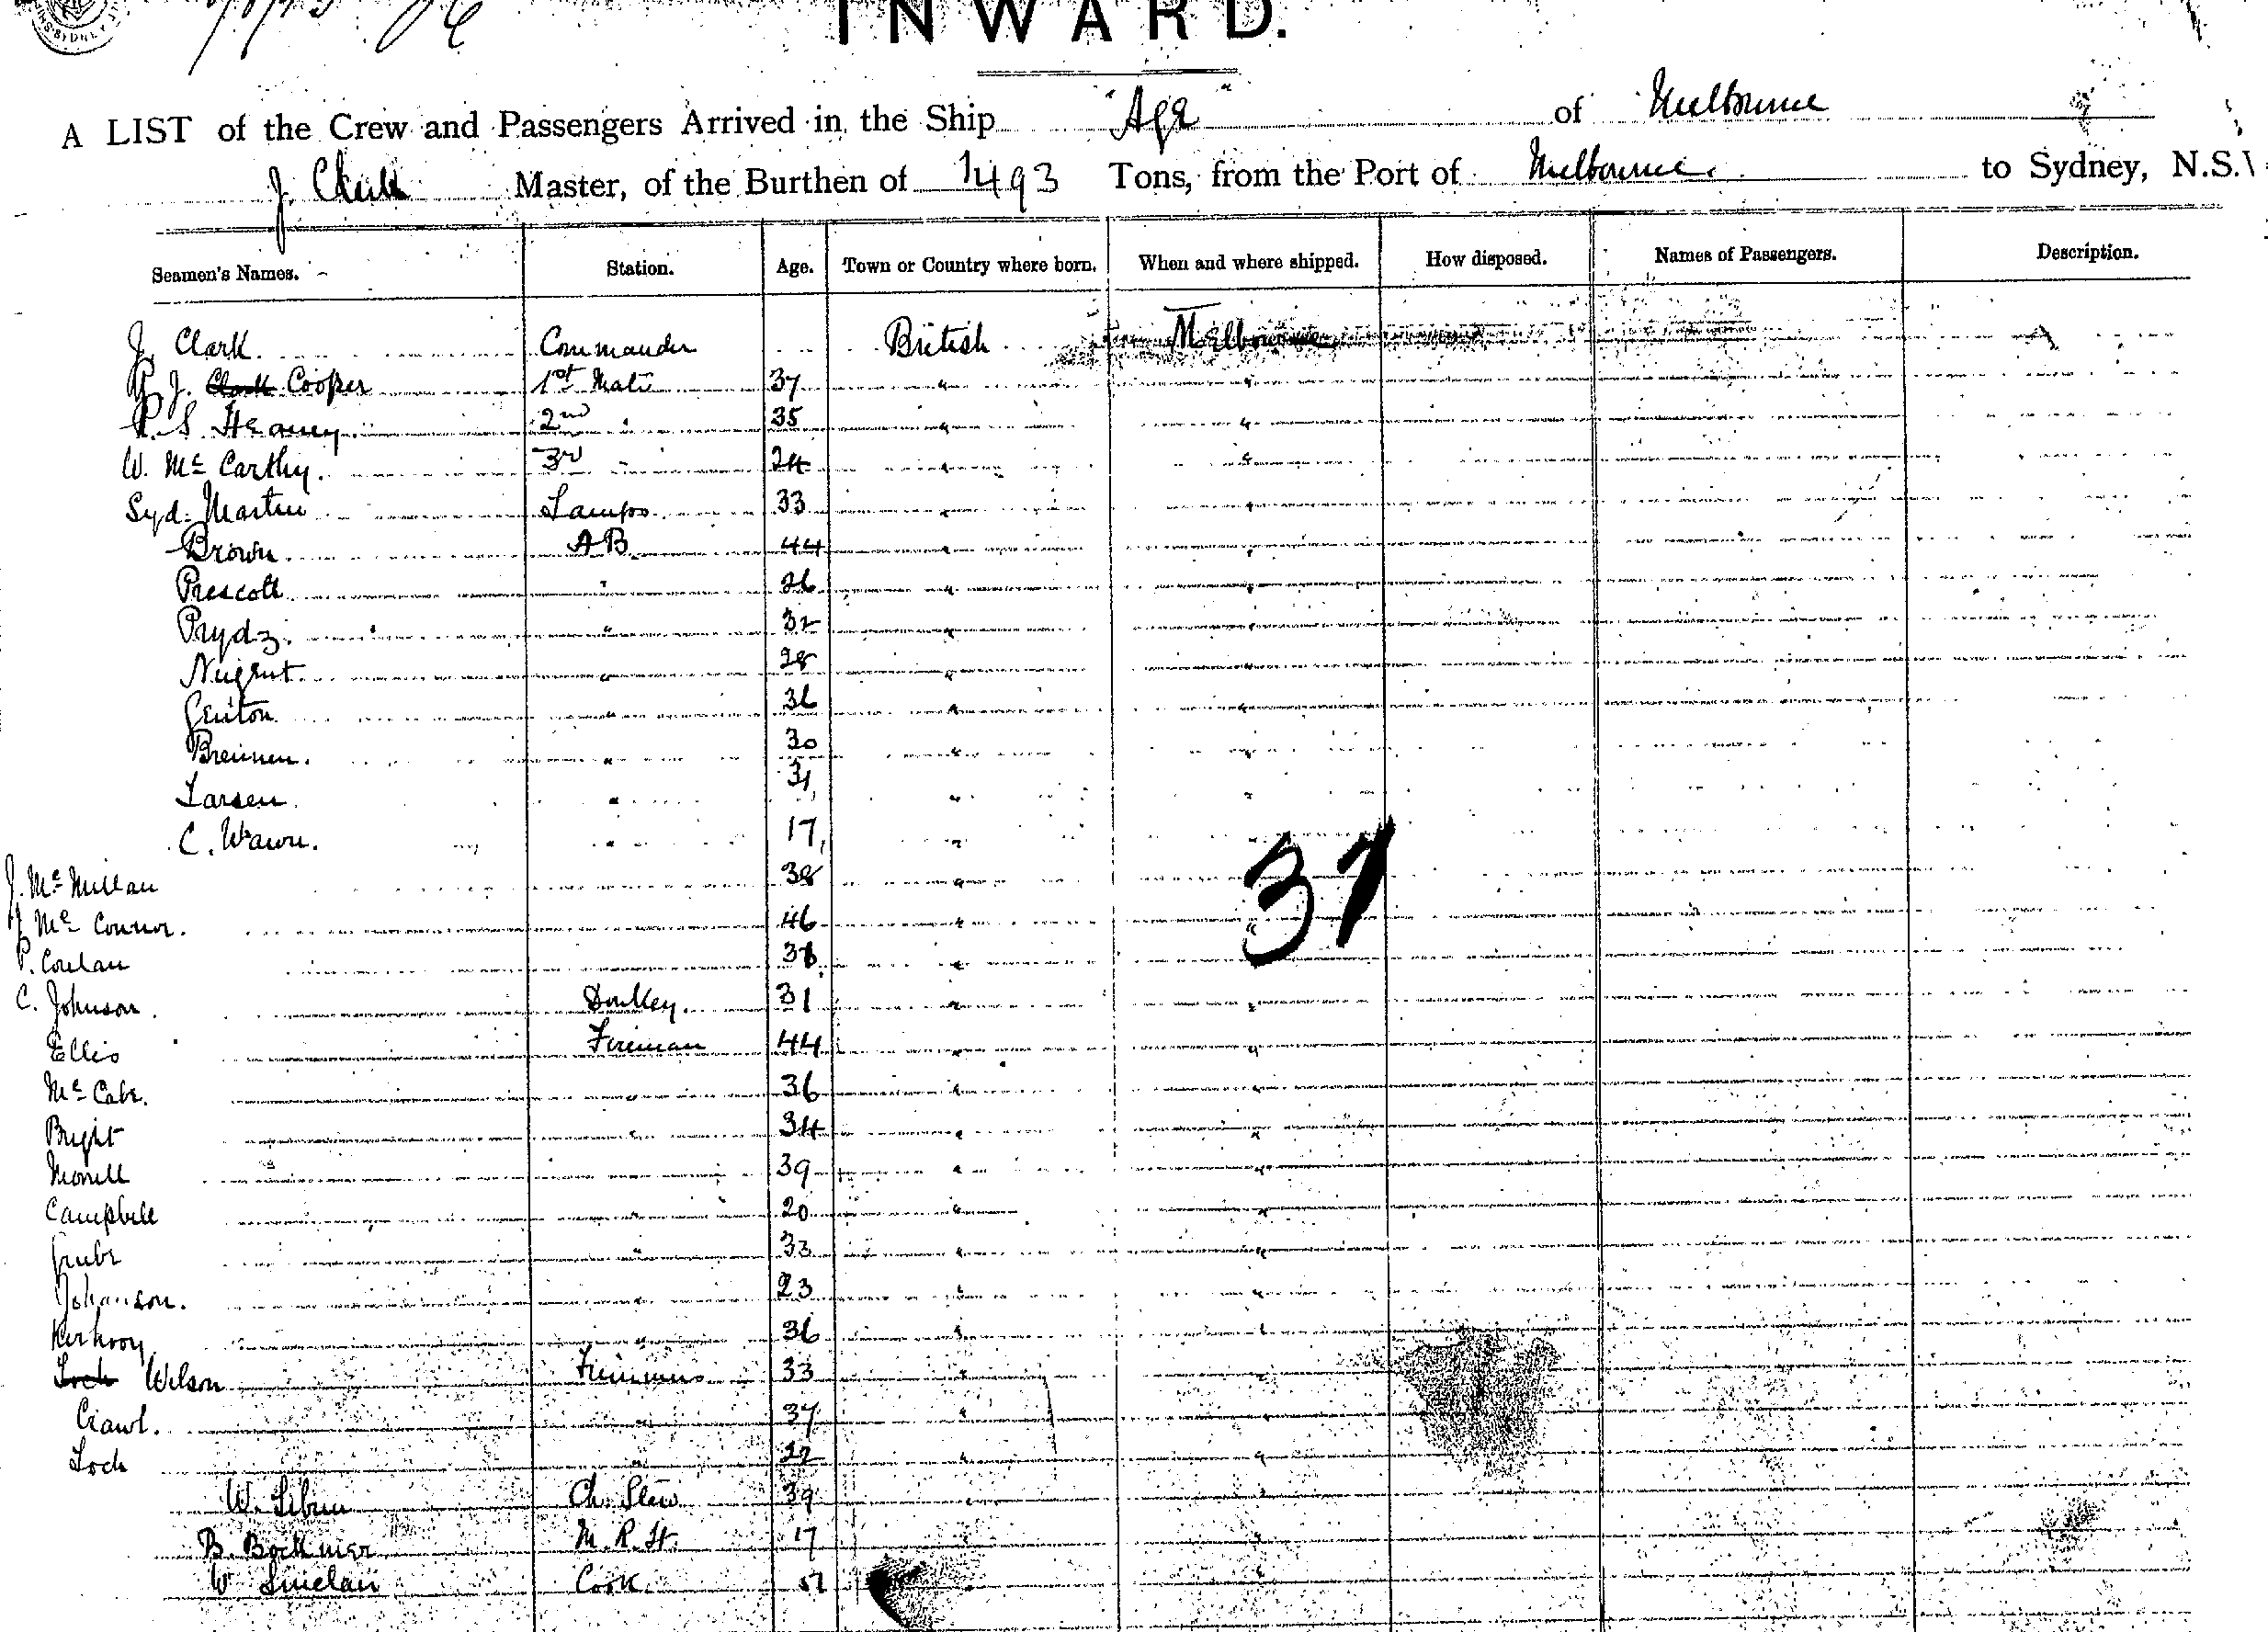 SYDNEY
INWARD.
A LIST of the Crew and Passengers Arrived in the Ship "Age" of Melbourne
J. Clark Master, of the Burthen of 1493 Tons, from the Port of Melbourne. to Sydney, N.S.
Seamen's Names. Station. Age. Town or Country where born. When and where shipped. How disposed. Names of Passengers. Description.
J. Clark. Commander British Melbourne
J. Clark Cooper 1st Mate 37 " "
S. Heaney. 2nd " 35 " "
W. Mc Carthy. 3rd " 24 " "
Syd. Martin Lamps 33 " "
Brown. A B 44 " "
Prescott " 26 " "
Prydz. " 32 " "
Nugent. " 28 " "
Genton " 36 " "
Brennen. " 30 " "
Larsen. " 31 " "
C. Wawn. " 17 "
37
J. Mc Millan 38 "
J Mc Connor. 46 " "
P. Conlan 38 " "
C. Johnson. Donkey. 31 " "
Ellis Fireman 44 " "
Mc Cabe. " 36 " "
Bright " 34 " "
Morrell " 39 " "
Campbell " 20 " "
" 33 " "
Johanson. " 23 " "
" 36 " "
Loch Wilson 33 " "
Crawl. " 37 " "
Loch " 22 " "
W. Ch. Stew 39 " "
B. Bockmer M. R. St. 17 " "
W Sinclair Cook. 51 " "